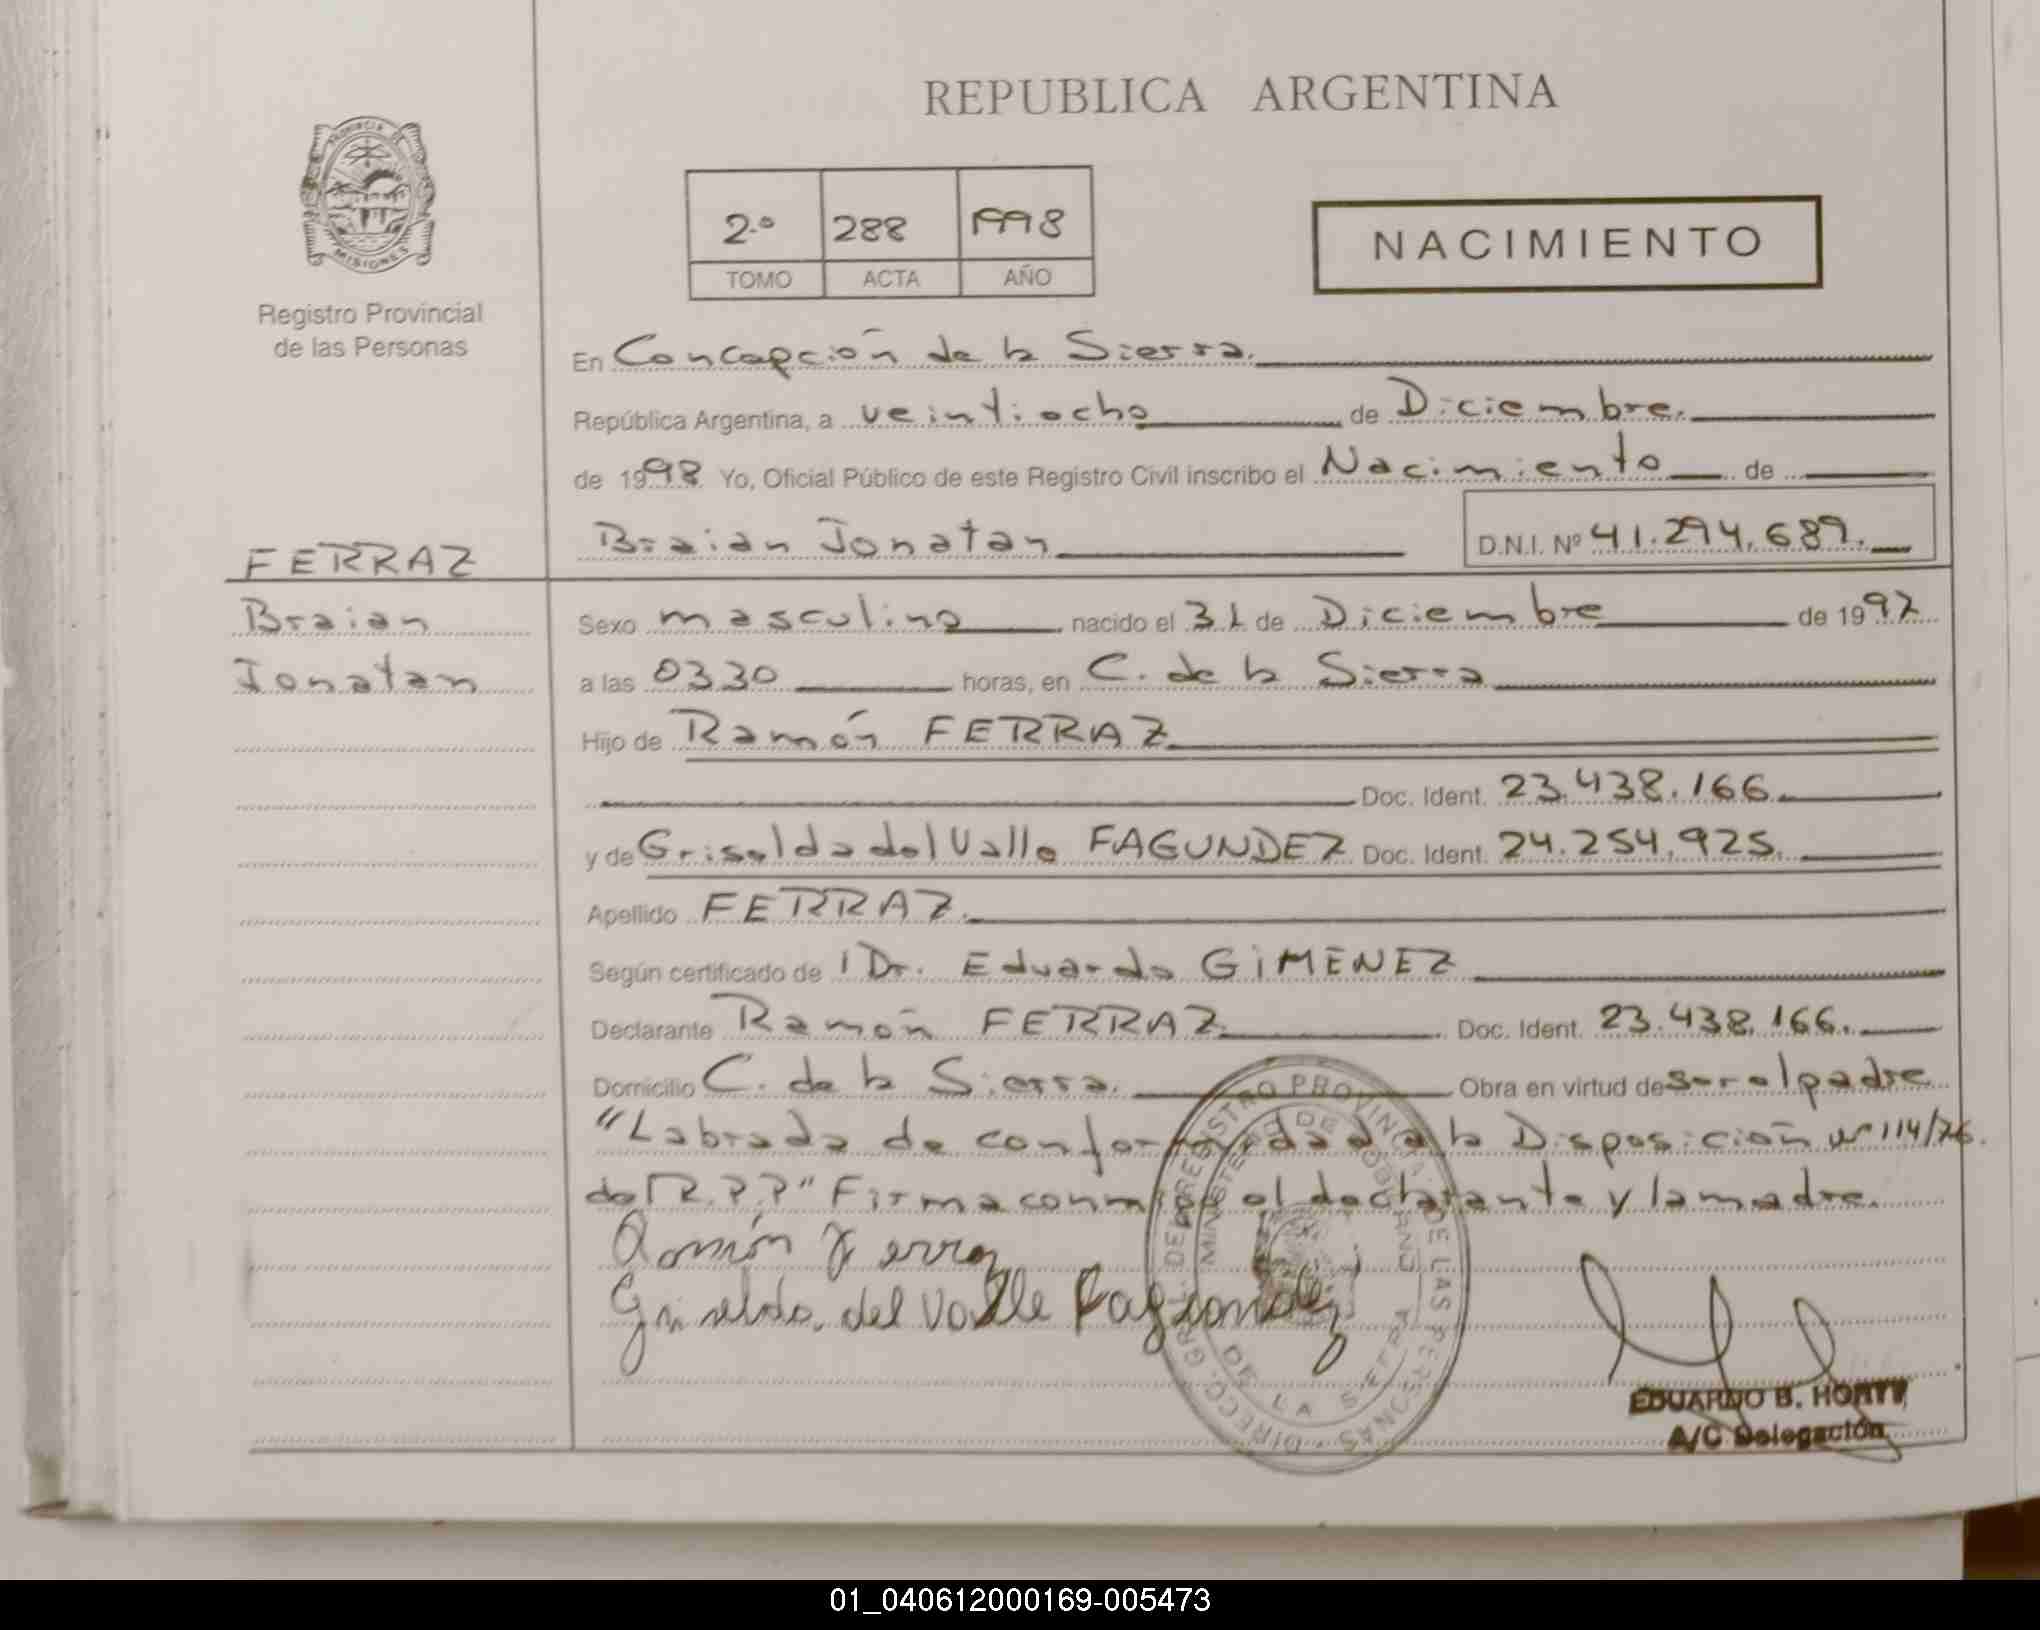 REPUBLICA ARGENTINA
PROVINCIA DE
MISIONES
Registro Provincial
de las Personas
2.º 288 1998
TOMO ACTA AÑO
NACIMIENTO
En Concepción de la Sierra.
República Argentina, a veintiocho de Diciembre.
de 1998. Yo, Oficial Público de este Registro Civil inscribo el Nacimiento de
Braian Jonatan D.N.I. Nº 41.294.689.
FERRAZ
Braian
Jonatan
Sexo masculino nacido el 31 de Diciembre de 1997
a las 0330 horas, en C. de la Sierra
Hijo de Ramón FERRAZ
Doc. Ident. 23.438.166
y de Griselda del Valle FAGUNDEZ Doc. Ident. 24.254.925.
Apellido FERRAZ.
Según certificado de Dr. Eduardo GIMENEZ
Declarante Ramón FERRAZ Doc. Ident. 23.438.166.
Domicilio C. de la Sierra. Obra en virtud de ser el padre
"Labrada de conformidad a la Disposición Nº 114/76.
del R.P.P" Firma conmigo el declarante y la madre.
Ramón Ferraz
Griselda del Valle Fagundez
DIRECC. GRAL. DEL REGISTRO PROVINCIAL DE LAS PERSONAS
MINISTERIO DE GOBIERNO
DE LA SIERRA
EDUARDO B.
A/C Delegación
01_040612000169-005473